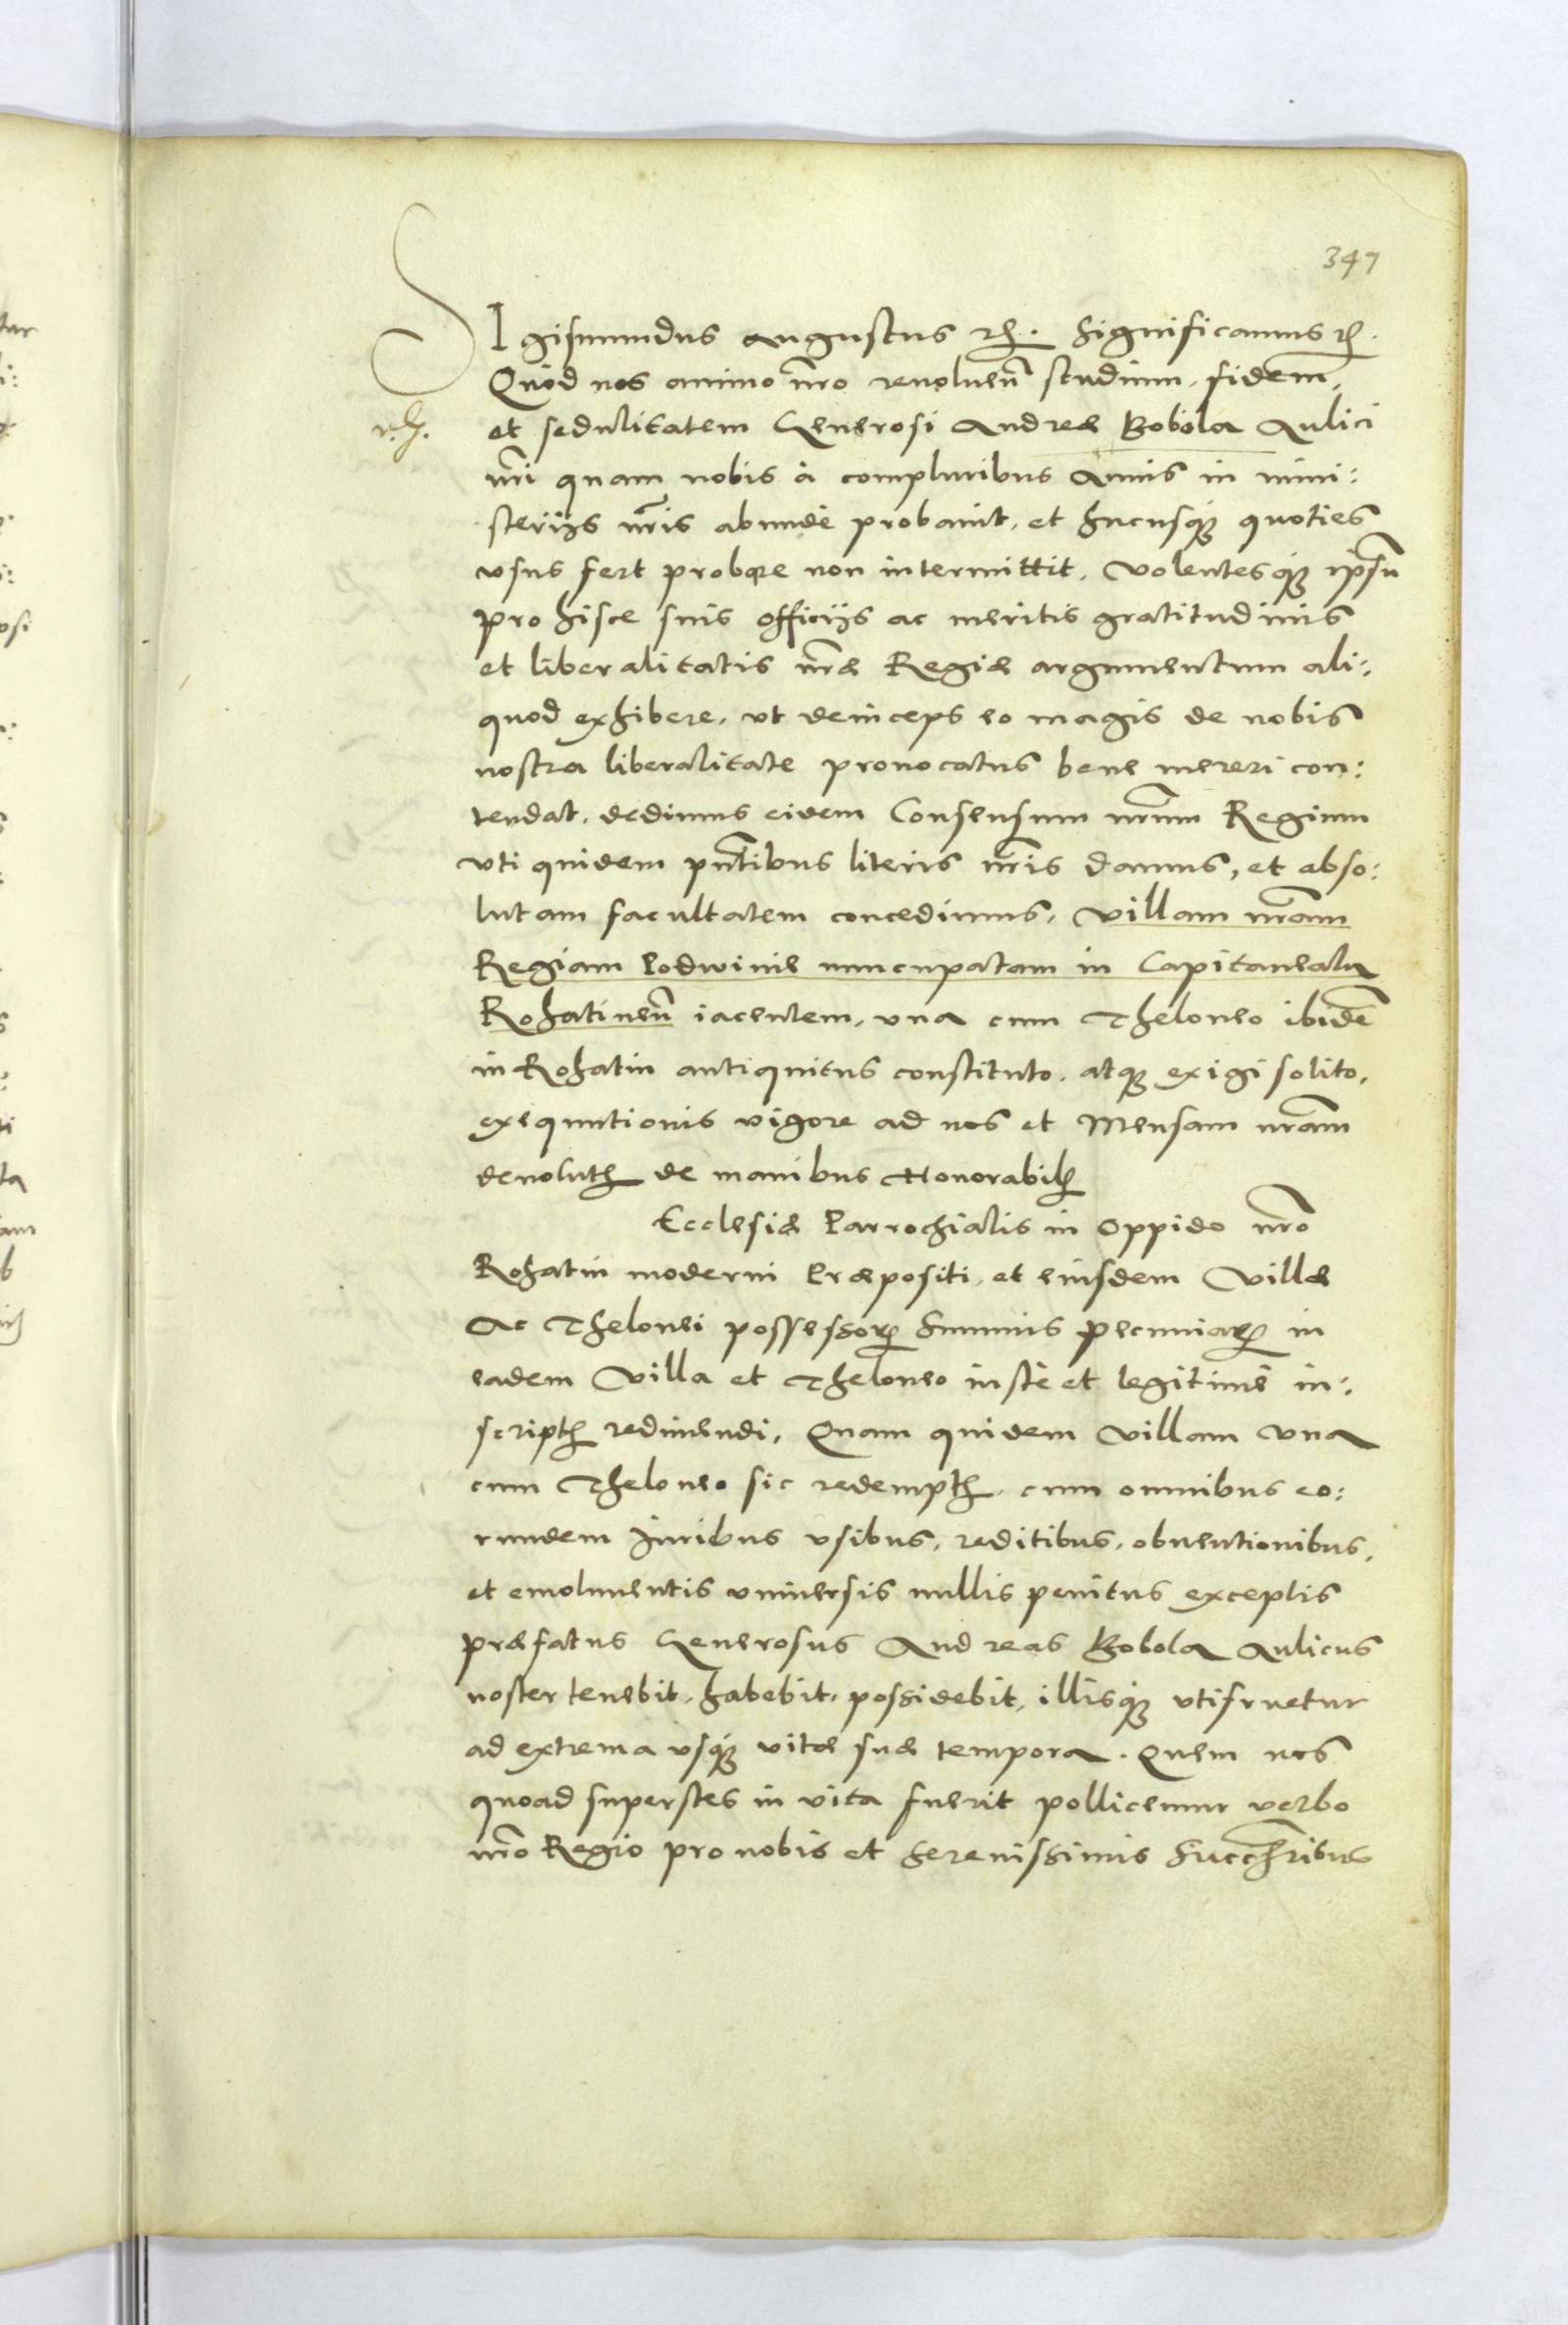 347
SIgismundus Augustus etc. Significamus etc.
Quod nos animo nrõ reuoluen̄ studium, fidem,
r. h.
et sedulitatem Generosi Andreæ Bobola Aulici
nri quam nobis à compluribus Annis in mini:
sterijs nris abundè probauit, et hucusq́ꝫ quoties
vsus fert probare non intermittit, Volentesq́ꝫ ipsū
pro hisce suis officijs ac meritis gratitudinis
et liberalitatis nræ Regiæ argumentum ali:
quod exhibere, vt deinceps eo magis de nobis
nostra liberalitate prouocatus bene mereri con:
tendat, dedimus eidem Consensum nrum Regium
vti quidem pntibus literis nris damus, et abso:
lutam facultatem concedimus, villam nram
Regiam Podwinie nuncupatam in Capitaneatu
Rohatinen̄ iacentem, vna cum Theloneo ibidē
in Rohatin antiquitus constituto, atqꝫ exigi solito,
exequutionis vigore ad nos et Mensam nram
deuolutꝫ de manibus Honorabilꝫ
Ecclesiæ Parrochialis in Oppido nro
Rohatin moderni Præpositi, et eiusdem Villæ
Ac Thelonei possessorꝫ Summis pecuniarꝫ in
eadem Villa et Theloneo iustè et legitimè in:
scriptꝫ redimendi, Quam quidem Villam Vna
cum Theloneo sic redemptꝫ, cum omnibus eo:
rundem Iuribus vsibus, reditibus, obuentionibus,
et emolumentis vniuersis nullis penitus exceptis
præfatus Generosus Andreas Bobola Aulicus
noster tenebit, habebit, possidebit, illisq́ꝫ vtifruetur
ad extrema vsq́ꝫ vitæ suæ tempora. Quem nos
quoad superstes in vita fuerit pollicemur verbo
nro Regio pro nobis et Serenissimis Succribus